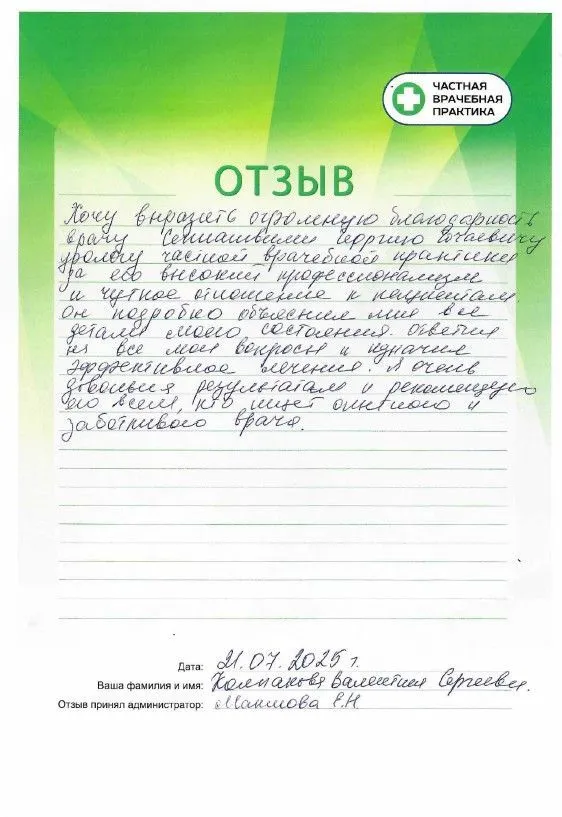 ЧАСТНАЯ
ВРАЧЕБНАЯ
ПРАКТИКА
ОТЗЫВ
Хочу выразить огромную благодарность
врачу Георгию
урологу частной врачебной практики
за его высокий профессионализм
и чуткое отношение к пациентам.
он подробно объяснил мне все
детали моего состояния. ответил
на все мои вопросы и назначил
эффективное лечение. Я очень
довольна результатом и рекомендую
его всем, кто ищет опытного и
заботливого врача.
Дата: 21.07.2025 г.
Ваша фамилия и имя: Валентина Сергеевна.
Отзыв принял администратор: Е.Н